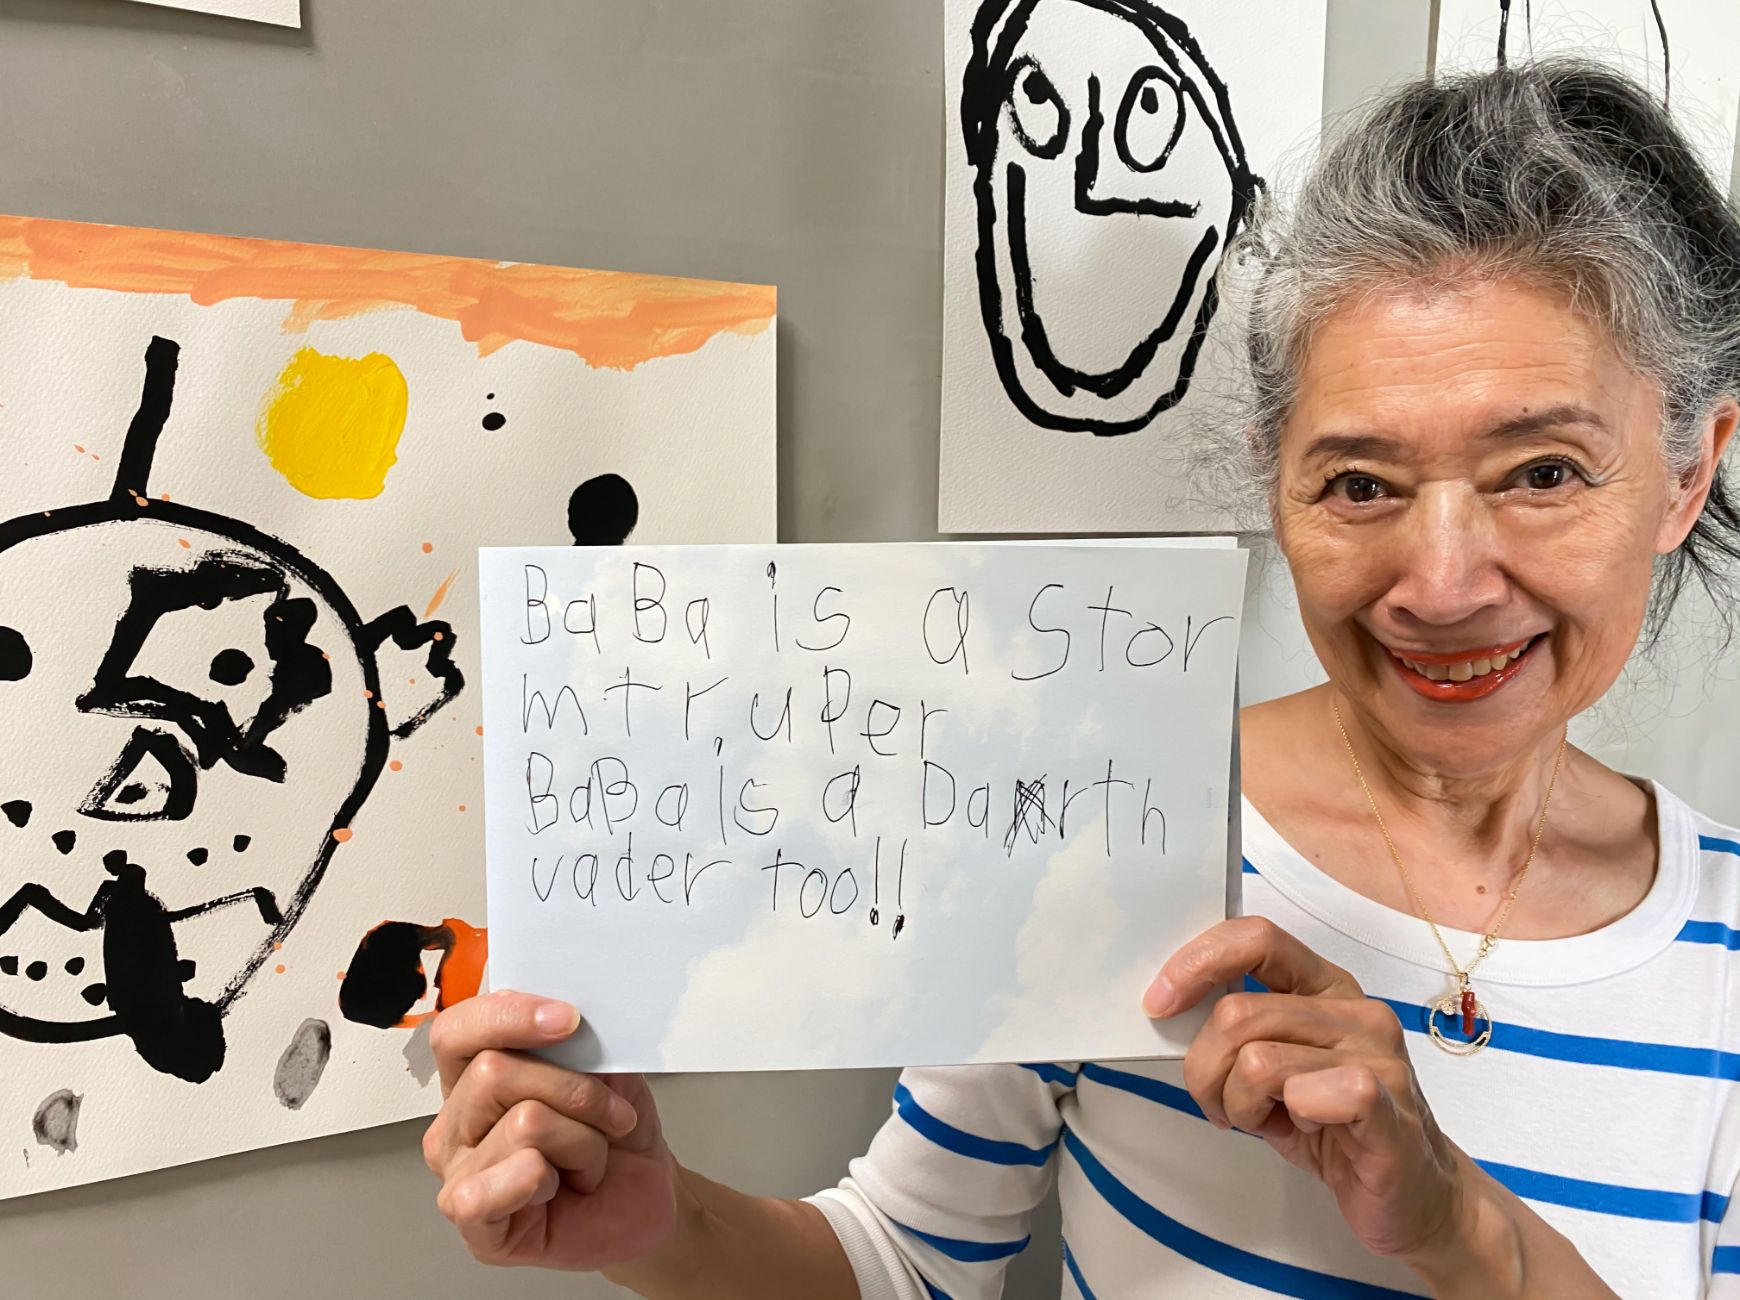 BaBa is a Stor
mtruPer
BaBa is a Darth
vader too!!